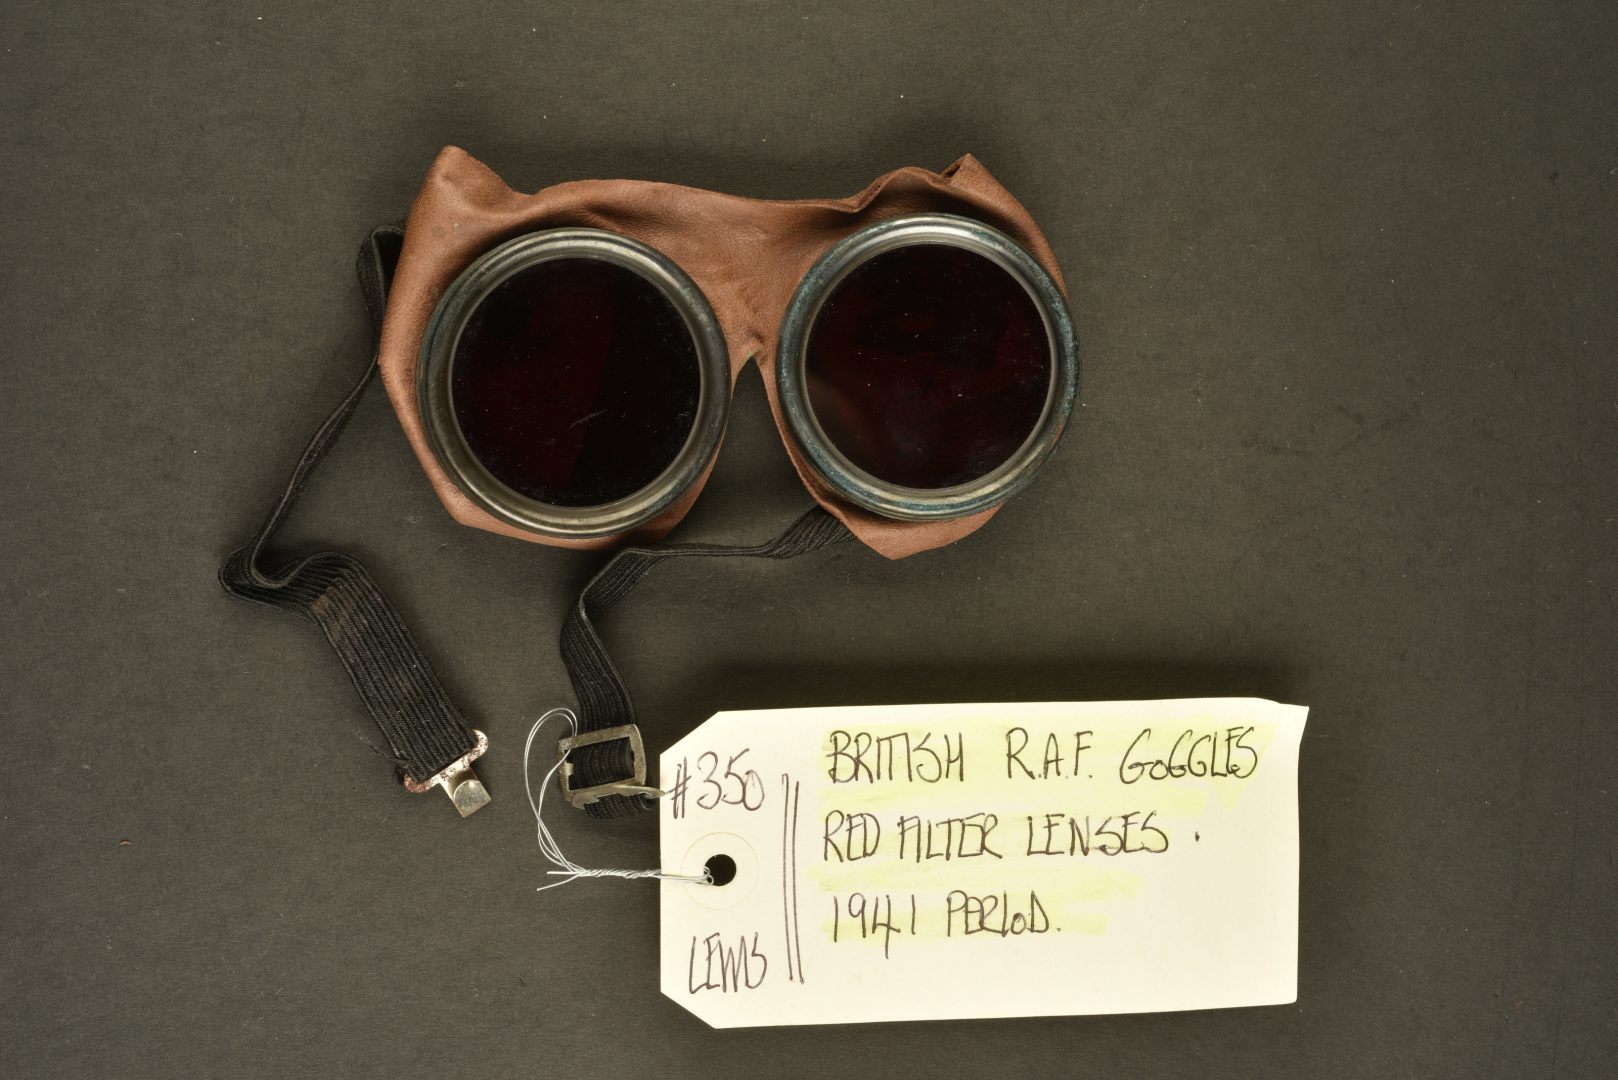 #350
LEWIS
BRITISH R.A.F. GOGGLES
RED FILTER LENSES.
1941 PERIOD.